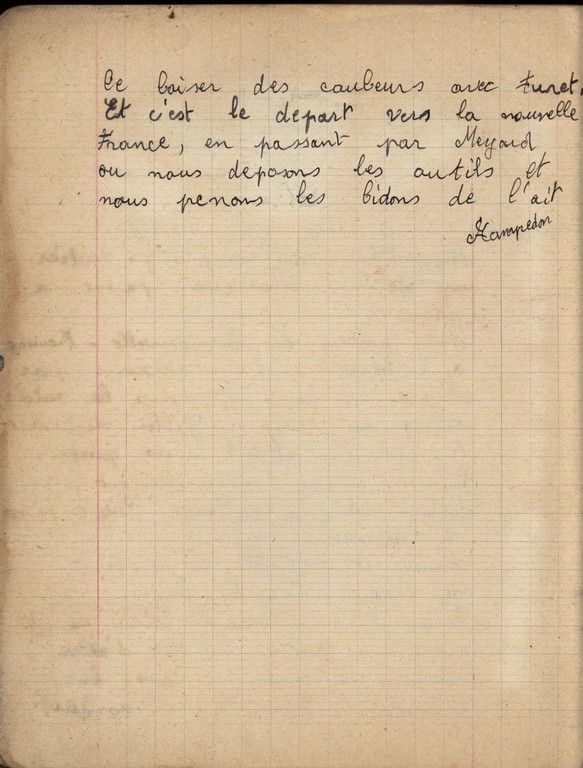 le baiser des caubeurs avec Furet.
Et c'est le départ vers la nouvelle
France, en passant par Meyard
ou nous deposons les outils et
nous penons les bidons de l'ait